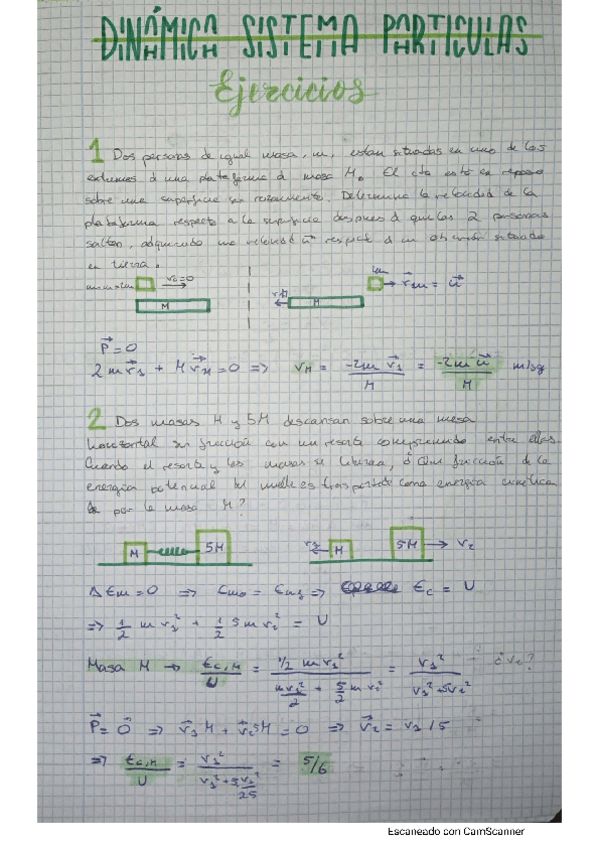 DINÁMICA SISTEMA PARTICULAS
Ejercicios
1 Dos personas de igual masa, m, estan situadas en uno de los
extremos d una plataforma d masa M. El cto está en reposo
sobre una superficie sin rozamiento. Determina la velocidad de la
plataforma respecto a la superficie despues d que las 2 personas
salten, adquiriendo una velocidad u⃗ respecto d un observador situado
en tierra.
v0=0
M
2m
v⃗m = u⃗
M
P⃗=0
2mv⃗1 + Mv⃗M=0 => vM = -2m v⃗1 / M = -2m u⃗ / M m/sg
2 Dos masas M y 5M descansan sobre una mesa
horizontal sin fricción con un resorte comprimido entre ellas.
Cuando el resorte y las masas se liberan, ¿Qué fracción de la
energía potencial del muelle es transportada como energía cinética
por la masa M?
M 5M v1 M 5M v2
ΔEm=0 => Em0 = Emf => Ec = U
=> 1/2 m v1² + 1/2 5m v2² = U
Masa M → Ec,M / U = 1/2 m v1² / (m v1²/2 + 5/2 m v2²) = v1² / (v1²+5v2²) ¿v2?
P⃗ = 0⃗ => v⃗1M + v⃗25M = 0 => v⃗2 = v1/5
=> Ec,M / U = v1² / (v1²+5 v1²/25) = 5/6
Escaneado con CamScanner